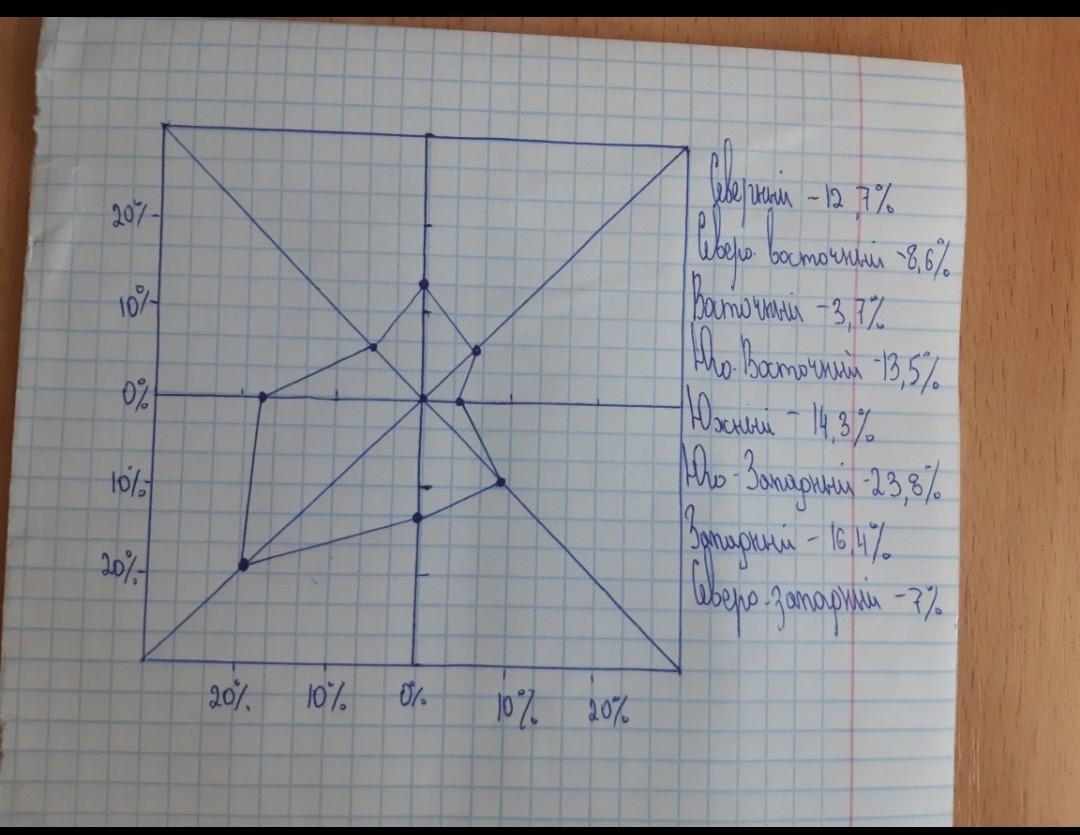 20%
10%
0%
10%
20%
20% 10% 0% 10% 20%
Северный - 12,7%
Северо-восточный - 8,6%
Восточный - 3,7%
Юго-Восточный - 13,5%
Южный - 14,3%
Юго-Западный - 23,8%
Западный - 16,4%
Северо-западный - 7%